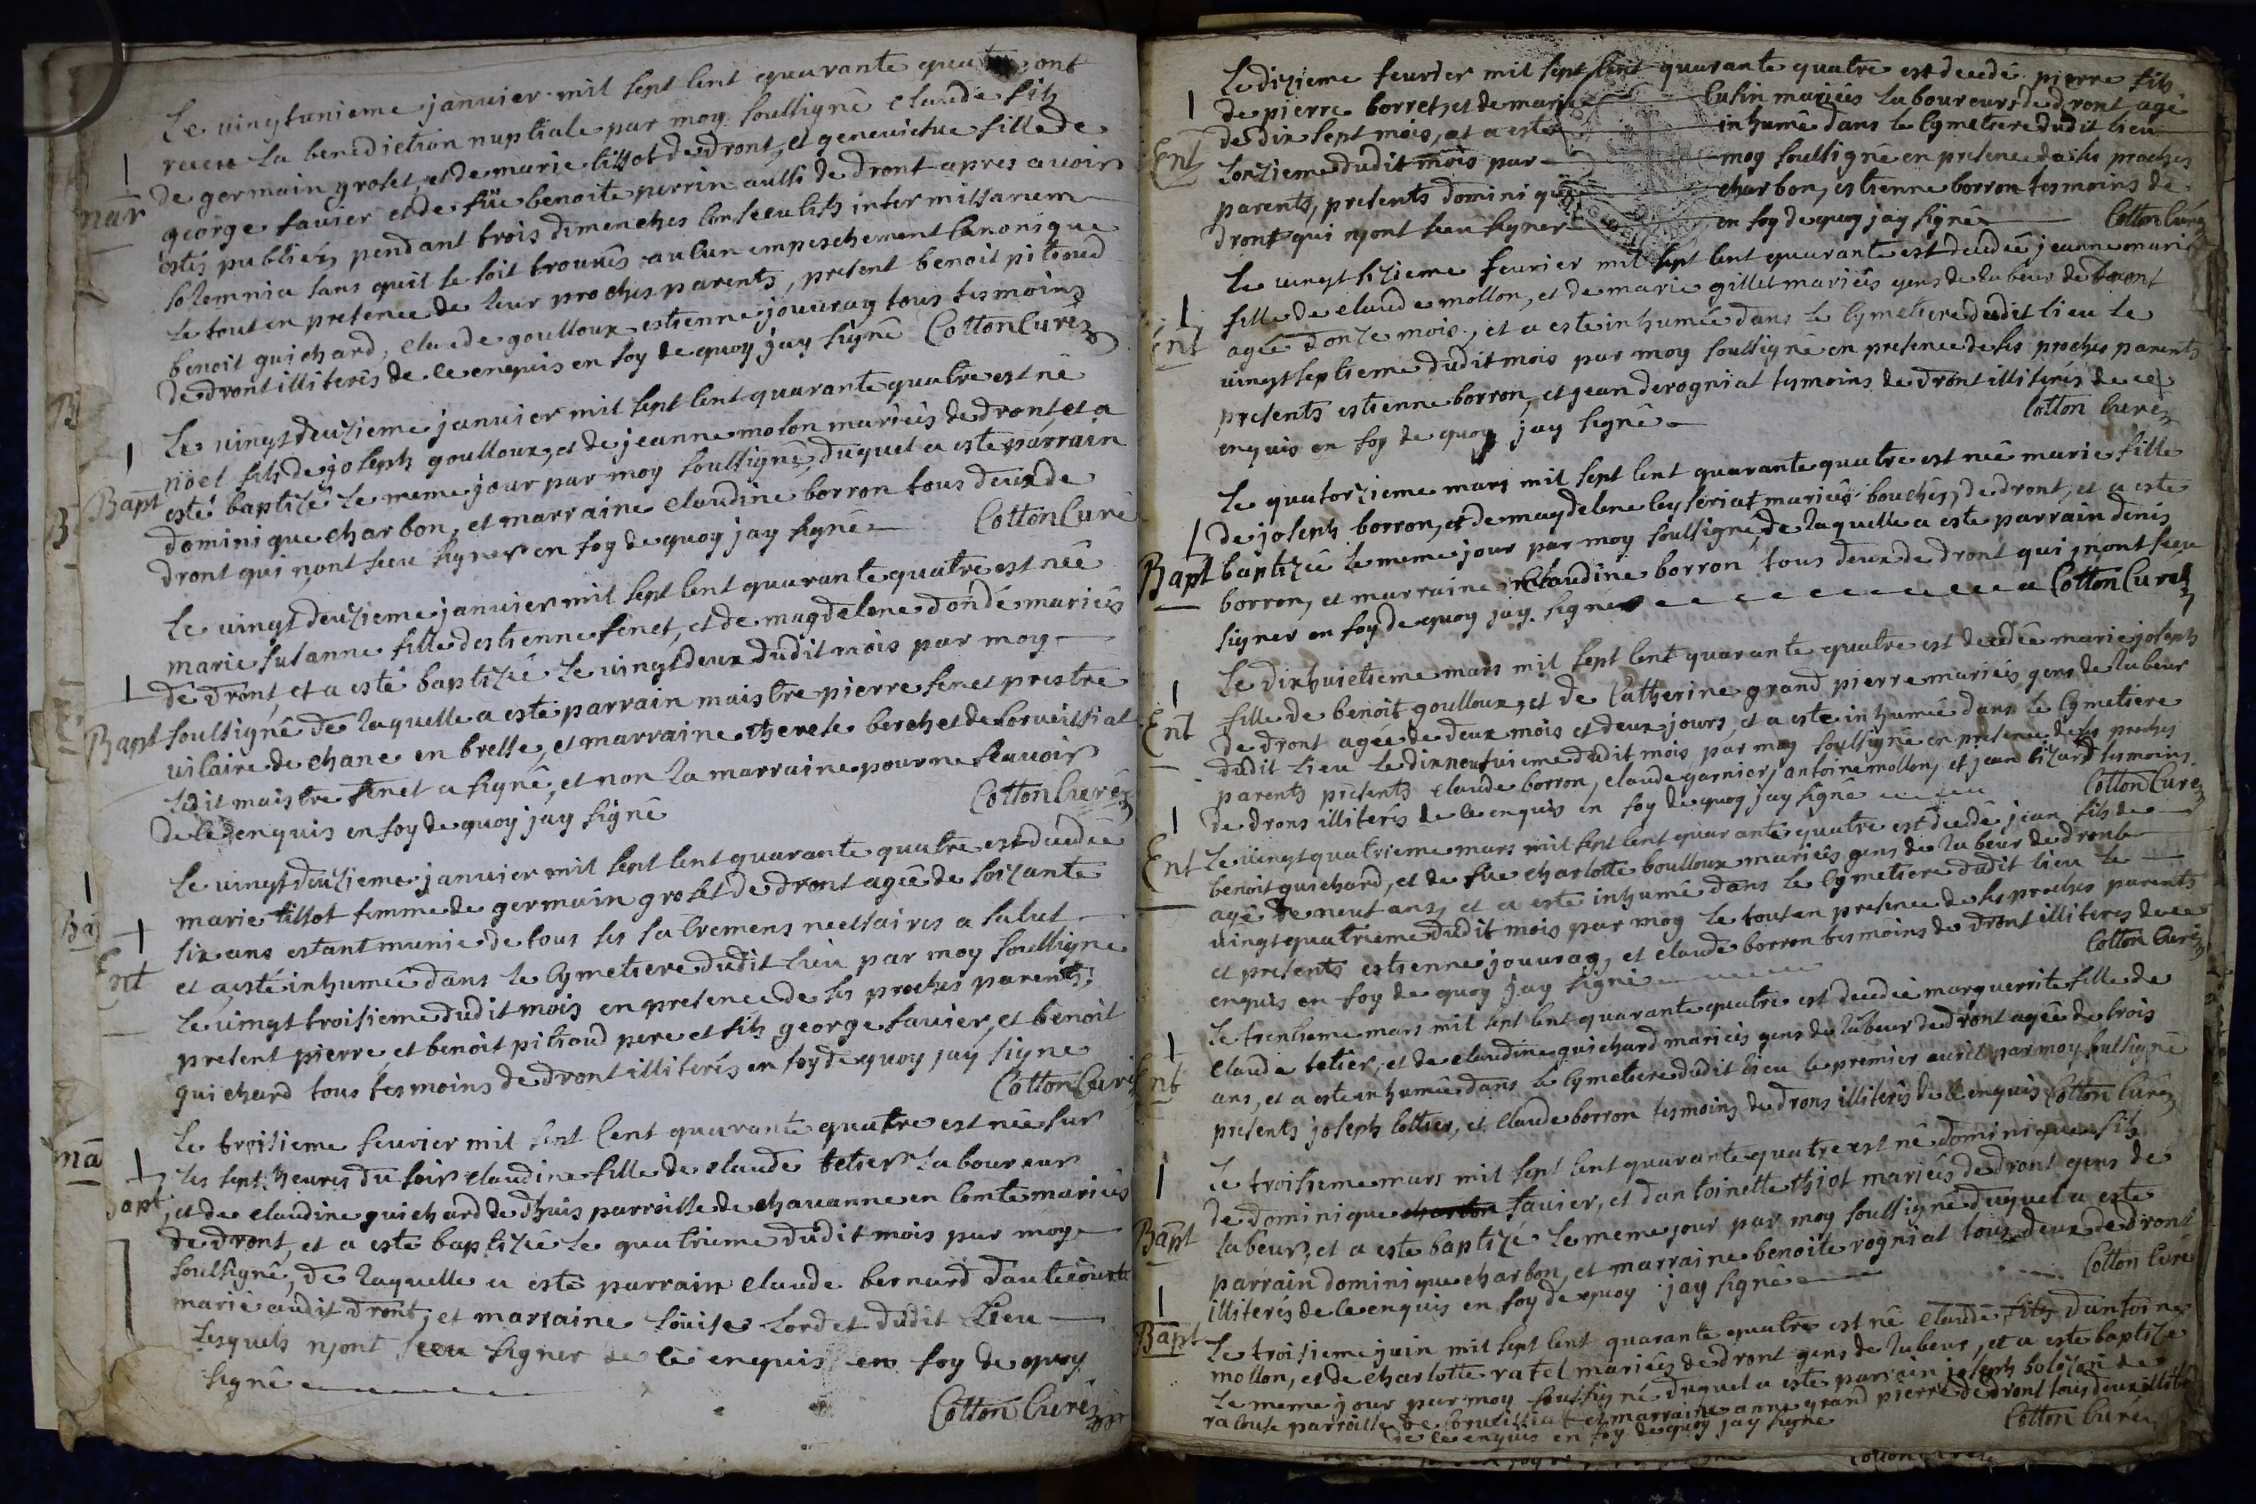 Le vingtunieme januier mil sept cent quarante quatre ont
receu la benediction nuptiale par moy soussigné claude fils
1
de germain groset, et de marie tissot de dront, et genevietue fille de
mar
george favier et de füe benoite perrin aussi de dront apres avoir
estés publiés pendant trois dimenches consecutifs inter missarum
solemnia sans quil se soit trouvés aucun empeschement canonique
le tout en presence de leur proches parents, present benoit pitioud
benoit guichard, claude goulloux estienne jouuray tous tesmoins
de dront illiterés de ce enquis en foy de quoy jay signé Cotton Curé
Le vingtdeuzieme januier mil sept cent quarante quatre est né
1
noel fils de joseph goulloux, et de jeanne molon mariés de dront, et a
Bapt
esté baptizé le meme jour par moy soussigné, duquel a este parrain
dominique charbon, et marraine claudine borron tous deux de
dront qui nont sceu signer en foy de quoy jay signé Cotton Curé
Le vingtdeuzieme januier mil sept cent quarante quatre est née
marie susanne fille destienne fenet, et de magdelene dondé mariés
1
de dront, et a esté baptizée le vingtdeux dudit mois par moy
Bapt
soussigné de laquelle a esté parrain maistre pierre fenet prestre
vilaire de chane en bresse, et marraine therese berchet de corveissiat
ledit maistre fenet a signé, et non la marraine pour ne scauoir
de ce enquis en foy de quoy jay signé Cotton Curé
Le vingtdeuzieme januier mil sept cent quarante quatre est decedée
1
marie tissot femme de germain groset de dront agée de soizante
six ans estant munie de tous les sacremens necessaires a salut
Ent
et a esté inhumée dans le cymetiere dudit lieu par moy soussigné
le vingt troisieme dudit mois en presence de ses proches parents,
present pierre et benoit pitioud pere et fils george favier, et benoit
guichard tous tesmoins de dront illiterés en foy de quoy jay signe
Cotton Curé
Le troisieme feurier mil sept cent quarante quatre est née sur
1
les sept heures du soir claudine fille de claude tetier laboureur
Bapt
, et de claudine guichard de dhuis parroisse de chauanne en comté mariés
de dront, et a esté baptizée le quatrieme dudit mois par moy
soussigné, de laquelle a esté parrain claude bernard dauticourt
marié audit dront, et marraine louise lordet dudit lieu
lesquels njont sceu signer de ce enquis en foy de quoy
signé
Cotton Curé
Le dizieme feurier mil sept cent quarante quatre est decedé pierre fils
1
de pierre borret, et de marie cusin mariés laboureurs de dront agé
de dix sept mois, et a esté inhumé dans le cymetiere dudit lieu
Ent
lonzieme dudit mois par moy soussigné en presence de ses proches
parents, presents dominique charbon, estienne borron tesmoins de
dront qui njont sceu signer en foy de quoy jay signé Cotton Curé
Le vingt sizieme feurier mil sept cent quarante est decedée jeanne marie
1
fille de claude mollon, et de marie gillet mariés gens de labeur de dront
Ent
agée donze mois, et a este inhumée dans le cymetiere dudit lieu le
vingtseptieme dudit mois par moy soussigné en presence de ses proches parents
presents estienne borron, et jean derogniat tesmoins de dront illiterés de ce
enquis en foy de quoy jay signé Cotton Curé
Le quatorzieme mars mil sept cent quarante quatre est née marie fille
1
de joseph borron, et de magdelene leyseriat mariés bouchés, de dront, et a esté
Bapt
baptizée le meme jour par moy soussigné, de laquelle a este parrain denis
borron, et marraine claudine borron tous deux de dront qui njont sceu
signer en foy de quoy jay signé Cotton Curé
Le dixhuictieme mars mil sept cent quarante quatre est decedée marie joseph
1
fille de benoit goulloux, et de Catherine grand pierre mariés gens de labeur
Ent
de dront agée de deux mois et deux jours, et a este inhumée dans le cymetiere
dudit lieu le dixneufuieme dudit mois, par moy soussigné en presence de ses proches
parents presents claude borron, claude garnier, antoine mollon, et jean tizard tesmoins
de drons illiterés de ce enquis en foy de quoy jay signe Cotton Curé
1
Le vingtquatrieme mars mil sept cent quarante quatre est decedé jean fils de
Ent
benoit guichard, et de füe charlotte boulloux mariés gens de labeur de dront
agé de neuf ans, et a esté inhumé dans le cymetiere dudit lieu le
vingtquatrieme dudit mois par moy le tout en presence de ses proches parents
et presents estienne jouuray, et claude borron tesmoins de dront illiteres de ce
enquis en foy de quoy jay signé Cotton Curé
Le trentieme mars mil sept cent quarante quatre est decedée marguerite fille de
1
claude tetier, et de claudine guichard mariés gens de labeur de dront agée de trois
Ent
ans, et a este inhumée dans le cymetiere dudit lieu le premier auril par moy soussigné
presents joseph lottier, et claude borron tesmoins de drons illiterés de ce enquis Cotton Curé
1
Le troisieme mars mil sept cent quarante quatre est né dominique fils
de dominique favier, et dantoinette thiot mariés de dront gens de
Bapt
labeur, et a esté baptizé le meme jour par moy soussigné duquel a esté
parrain dominique charbon, et marraine benoite rogniat tous deux de dront
illiterés de ce enquis en foy de quoy jay signé Cotton Curé
1
Bapt
Le troisieme juin mil sept cent quarante quatre est né claude fils dantoine
mollon, et de charlotte ratel mariés de dront gens de labeur, et a esté baptizé
le meme jour par moy soussigné duquel a esté parrain joseph bolozon de
racouse parroisse de corveissiat et marraine anne grand pierre de dront tous deux
de ce enquis en foy de quoy jay signé Cotton Curé